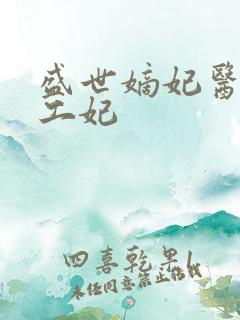 盛世嫡妃醫
工妃
四喜乾果1
未经同意禁止搭载